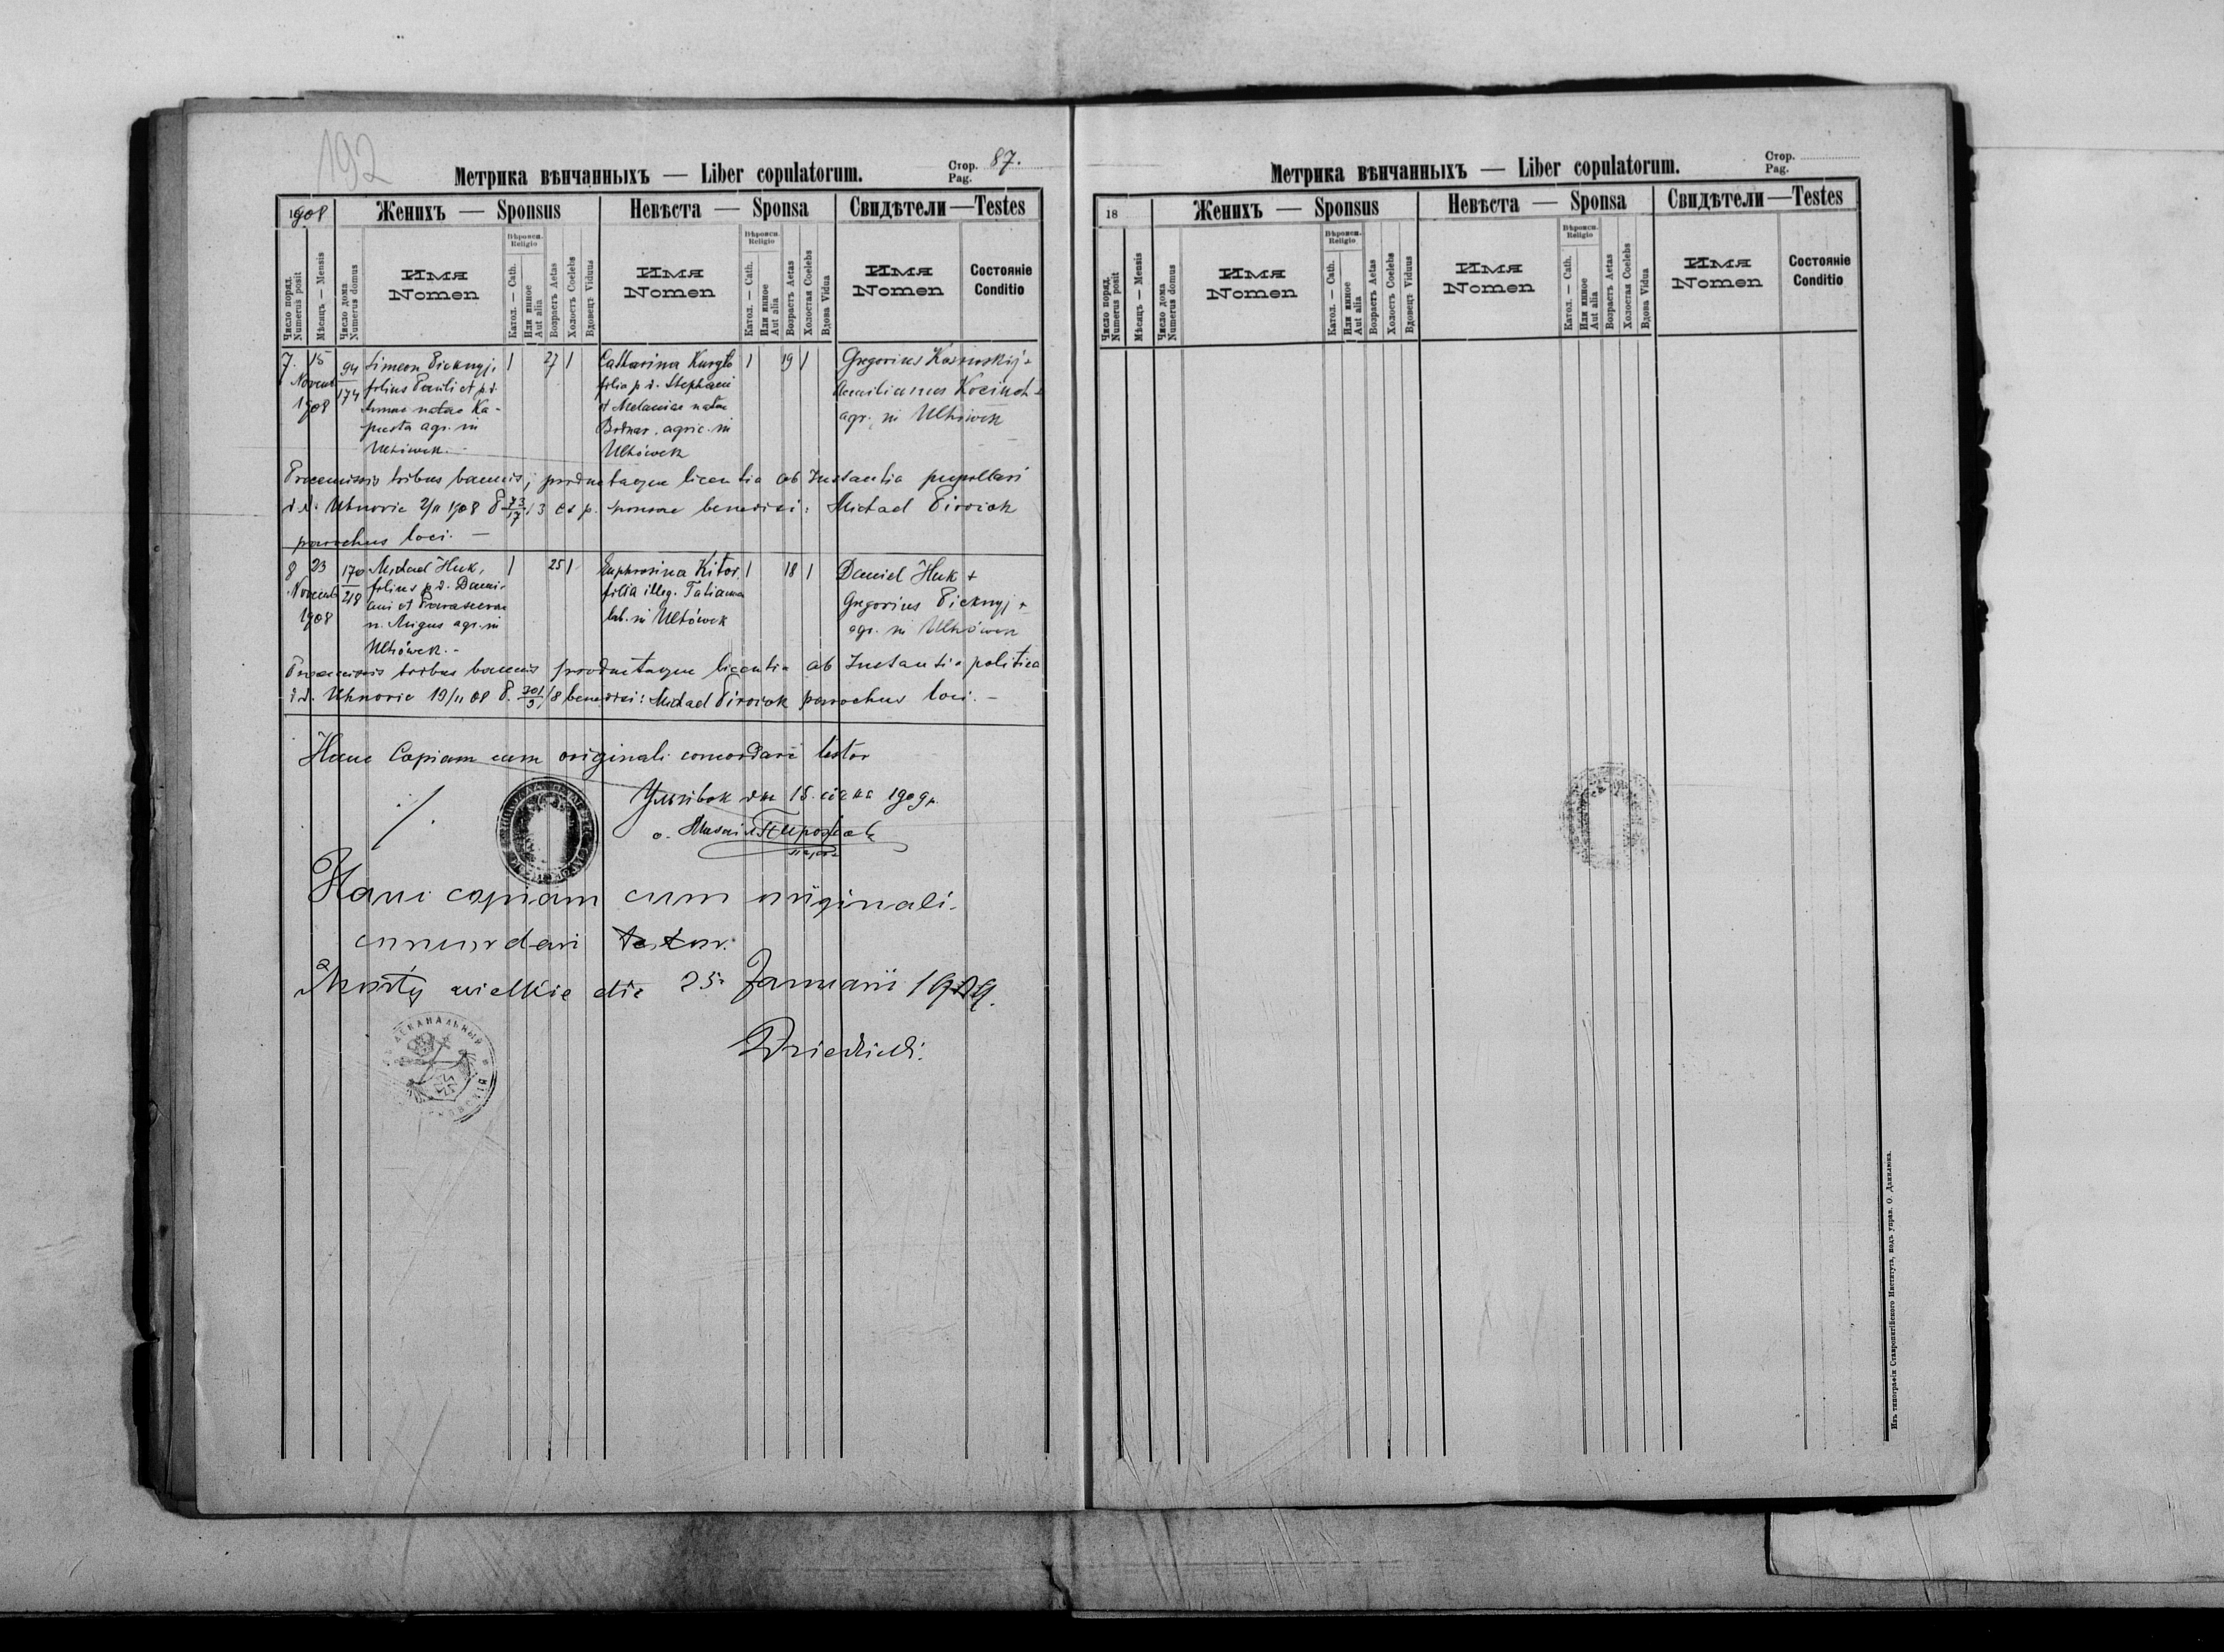 192
Метрика вѣнчанныхъ — Liber copulatorum.
Стор. Pag. 87.
1908
Женихъ — Sponsus
Невѣста — Sponsa
Свидѣтели — Testes
Число поряд. Numerus posit
Мѣсяцъ — Mensis
Число дома Numerus domus
Имя Nomen
Вѣроисп. Religio
Катол. — Cath.
Или инное Aut alia
Возрастъ Aetas
Холостъ Coelebs
Вдовецъ Viduus
Имя Nomen
Вѣроисп. Religio
Катол. — Cath.
Или инное Aut alia
Возрастъ Aetas
Холостая Coelebs
Вдова Vidua
Имя Nomen
Состояніе Conditio
7. 15 Novemb 1908
94/174
Simeon Picknyj,
filius Pauli et p.d.
Annae natae Ka-
pusta agr. in
Uhrówek.-
1 27 1
Catharina Kuryło
filia p.d. Stephani
et Melaniae natae
Bodnar, agric. in
Ulhówek
1 19 1
Gregorius +
Aemilianus +
agr. in Ulhówek
Praemissis tribus bannis, productaque licentia ab Instantia pupillari
d.d. Uhnovie 2/11 1908 P 73/17 /3 et p. sponsae benedixi: Michael Pirożok
parochus loci. —
8 23 Novemb 1908
170/218
Michael Huk,
filius p.d. Dami-
ani et Parascevae
n. Migus agr. in
Ulhówek.-
1 25 1
Euphrosina Kitor,
filia illeg. Tatianna
lab. in Ulhówek
1 18 1
Daniel Huk +
Gregorius Picknyj +
agr. in Ulhówek
Praemissis tribus bannis productaque licentia ab Instantia politica
d.d. Uhnovie 19/11 08 P. 201/5 /8 benedixi: Michael Pirożok parochus loci. —
Hanc Copiam cum originali concordare testor
15. 1909 р.
о.
Hanc copiam cum originali
concordari testor.
Mosty wielkie die 25 Januarii 1909.
Метрика вѣнчанныхъ — Liber copulatorum.
Стор. Pag.
18
Женихъ — Sponsus
Невѣста — Sponsa
Свидѣтели — Testes
Число поряд. Numerus posit
Мѣсяцъ — Mensis
Число дома Numerus domus
Имя Nomen
Вѣроисп. Religio
Катол. — Cath.
Или инное Aut alia
Возрастъ Aetas
Холостъ Coelebs
Вдовецъ Viduus
Имя Nomen
Вѣроисп. Religio
Катол. — Cath.
Или инное Aut alia
Возрастъ Aetas
Холостая Coelebs
Вдова Vidua
Имя Nomen
Состояніе Conditio
Изъ типографіи Ставропигійского Института, подъ управ. О. Данилюка.